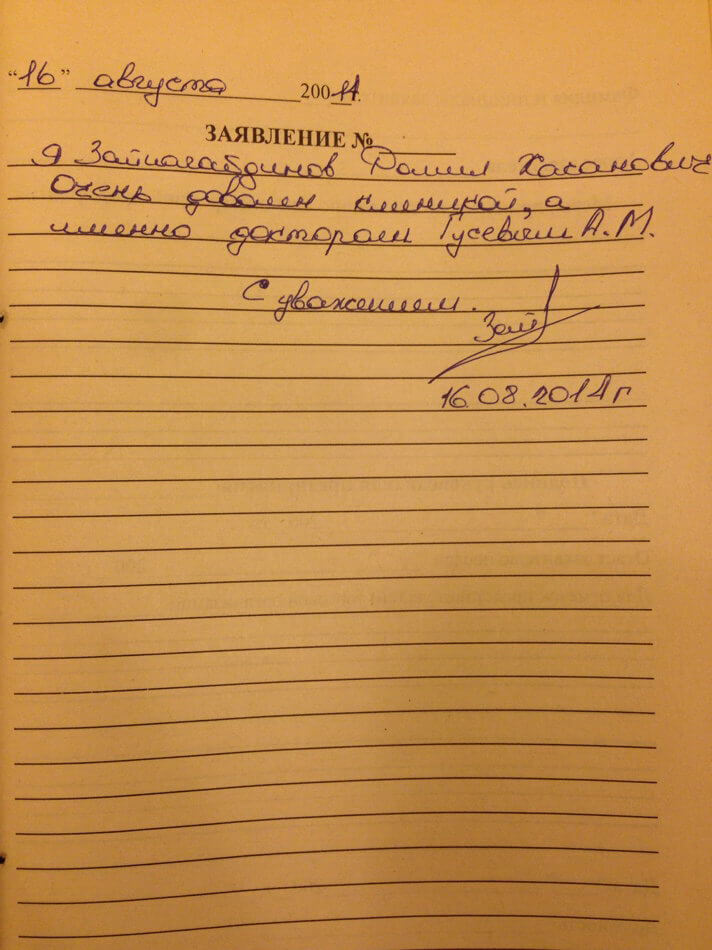 "16" августа 20014.
ЗАЯВЛЕНИЕ №
Я Зайнагабдинов Хасанович
Очень доволен клиникой, а
именно доктором Гусевым А.М.
С уважением.
Зай
16.08.2014 г